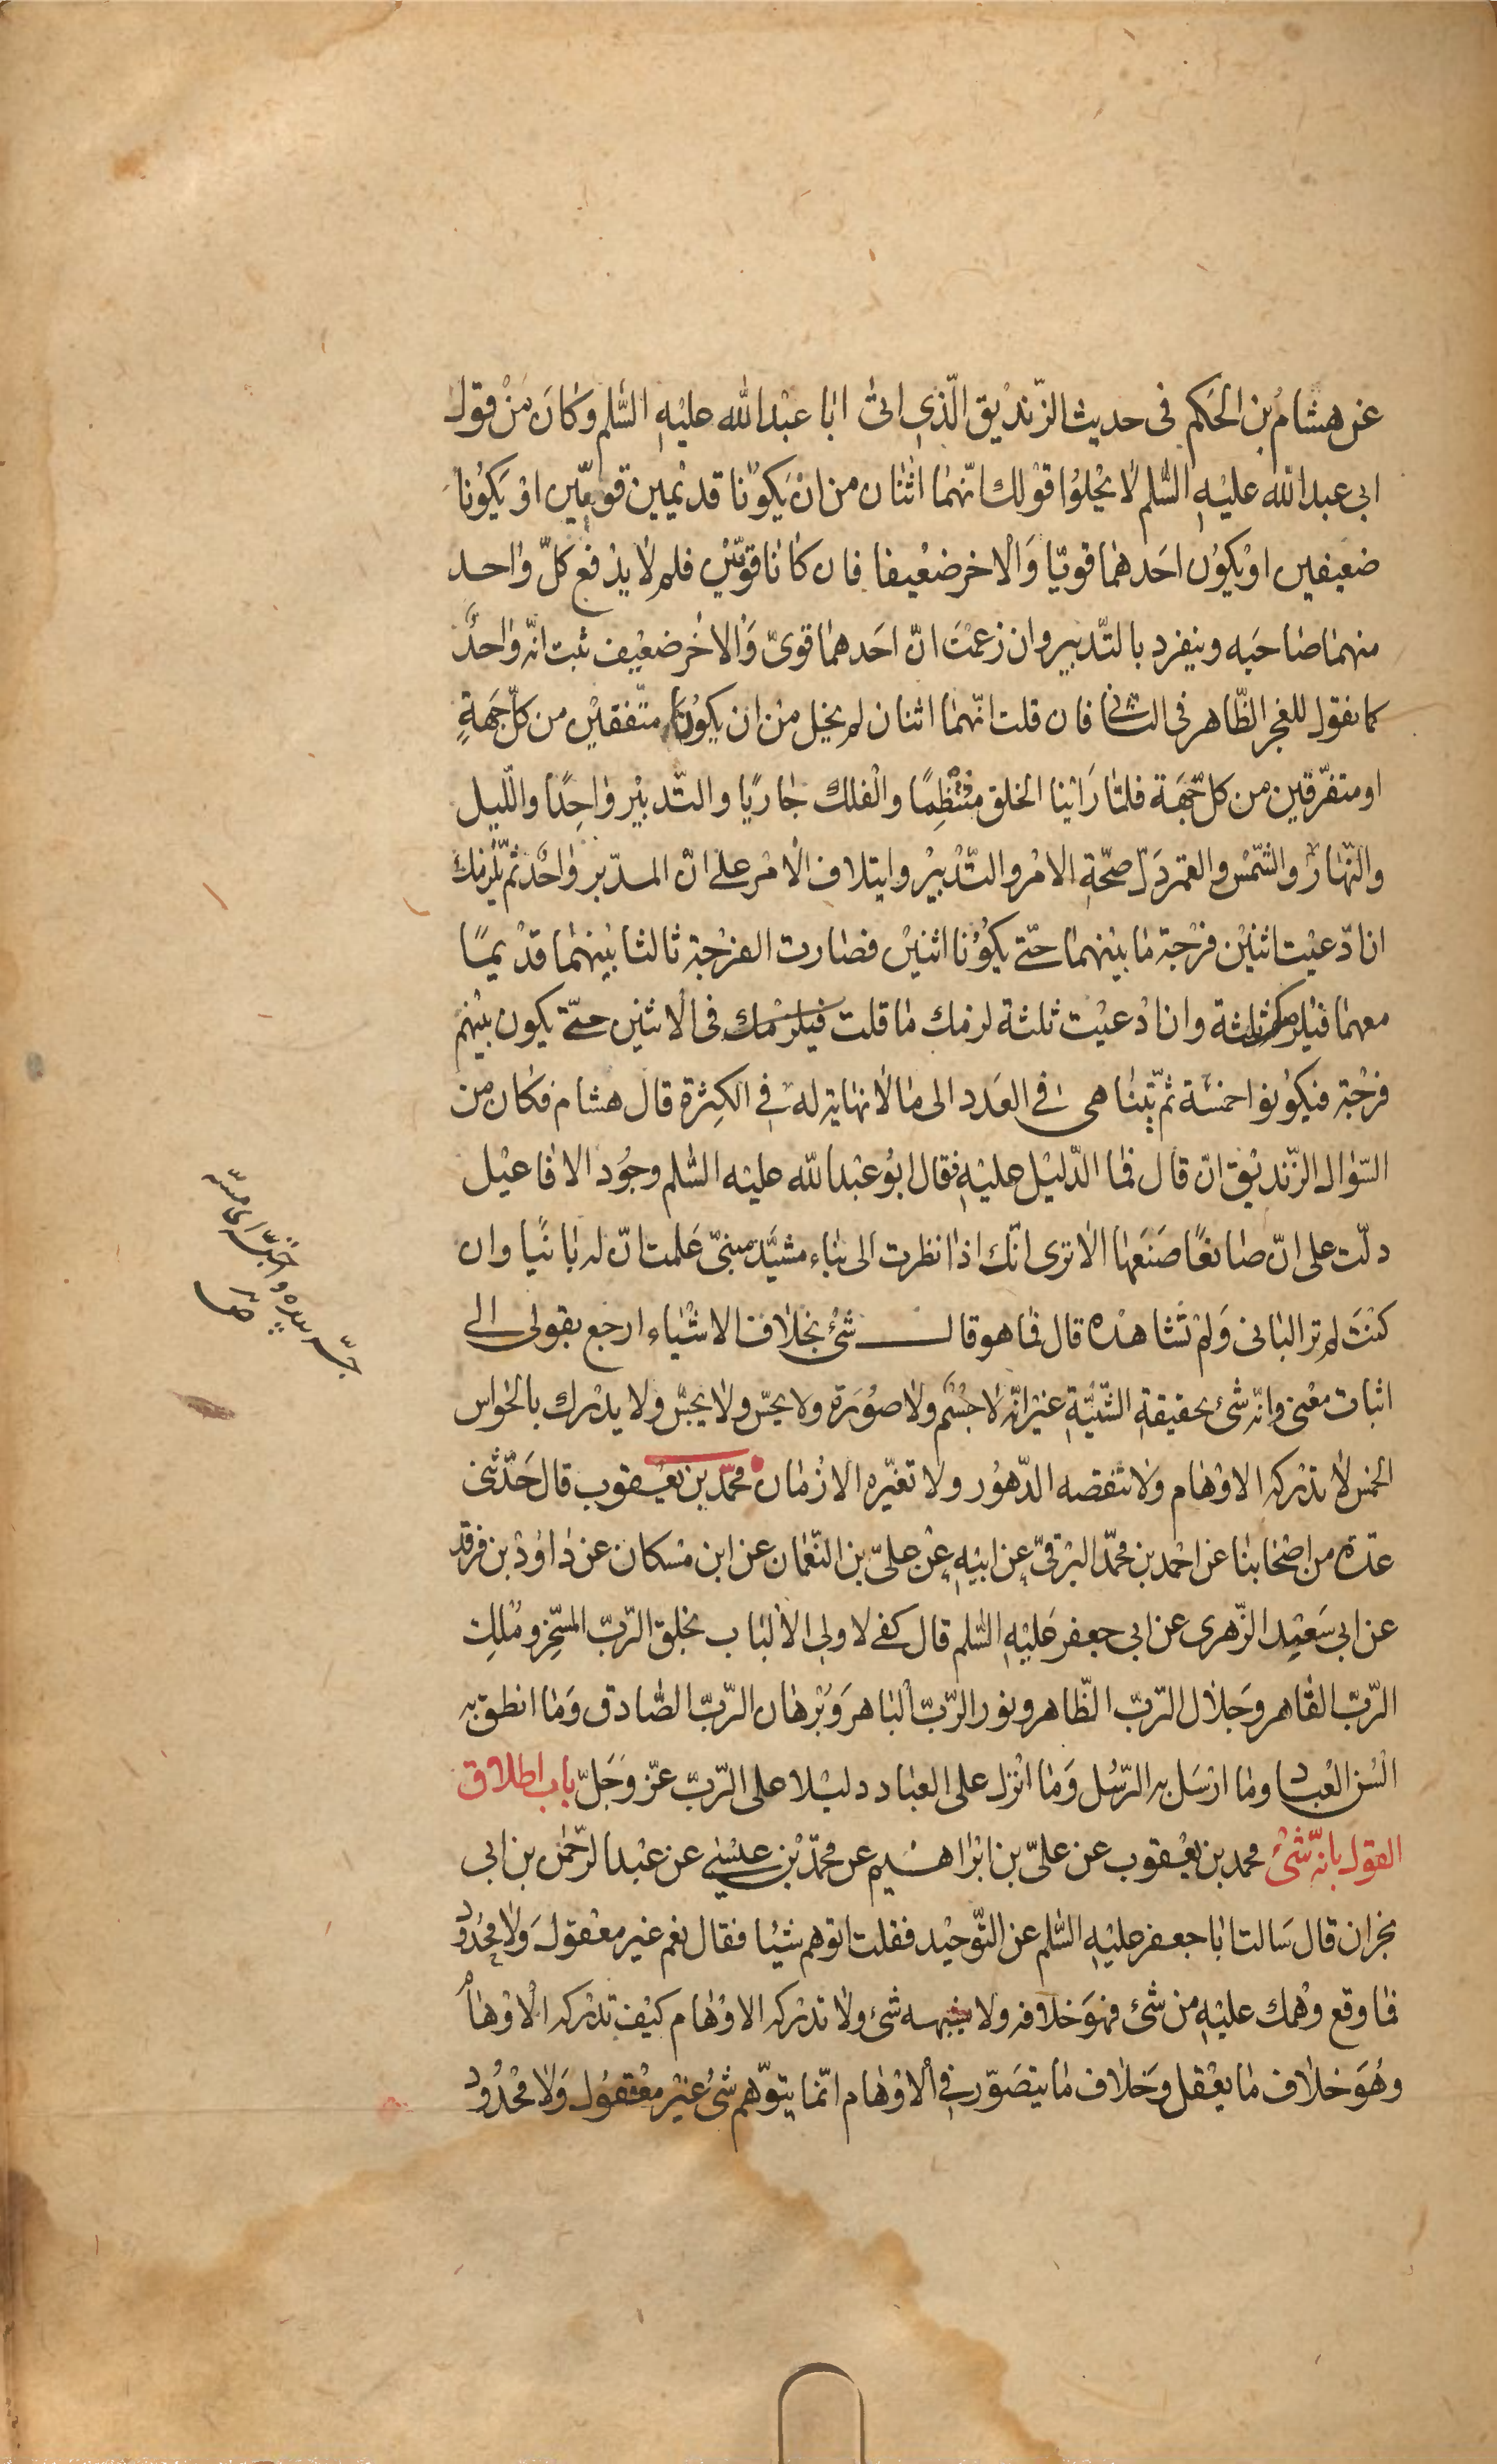 عن هشام بن الحكم فى حديث الزّنديق الّذى اتى ابا عبد الله عليه السّلم وكان من قول
ابى عبد الله عليه السّلم لا يخلوا قولك انّهما اثنان من ان يكونا قديمين قويّين او يكونا
ضعيفين او يكون احدهما قويّا والاخر ضعيفا فان كانا قويّين فلم لا يدفع كلّ واحد
منهما صاحبه ويتفرد بالتّدبير وان زعمت انّ احدهما قوىّ والاخر ضعيف ثبت انّه واحد
كما نقول للعجز الظّاهر فى الثانى فان قلت انّهما اثنان لم يخل من ان يكونا متّفقين من كلّ جهةٍ
او متفرّقين من كلّ جهة فلمّا راينا الخلق منتظمًا والفلك جاريًا والتّدبير واحدًا واللّيل
والنّهار والشّمس والقمر دلّ صحّة الامر والتّدبير وايتلاف الامر على انّ المدبّر واحد ثمّ يلزمك
ان ادّعيت اثنين فرجة ما بينهما حتّى يكونا اثنين فصارت الفرجة ثالثا بينهما قديمًا
معهما فيلزمك ثلثة وان ادعيت ثلثة لزمك ما قلت فيلزمك فى الاثنين حتّى يكون بينهم
فرجة فيكونوا خمسة ثمّ يتناهى فى العدد الى ما لا نهاية له فى الكثرة قال هشام فكان من
السّؤال الزّنديق ان قال فما الدّليل عليه فقال ابو عبد الله عليه السّلم وجود الافاعيل
دلّت على انّ صانعًا صنعها الا ترى انّك اذا نظرت الى بناء مشيّد مبنىّ علمت انّ له بانيًا وان
كنت لم تر البانى ولم تشاهده قال فما هو قال شئ بخلاف الاشياء ارجع بقولى الى
اثبات معنى وانّه شئ بحقيقة الشّيئيّة غير انّه لا جسم ولا صورة ولا يحسّ ولا يجسّ ولا يدرك بالحواس
الخمس لا تدركه الاوهام ولا تنقصه الدّهور ولا تغيّره الازمان محمّد بن يعقوب قال حدّثنى
عدّة من اصحابنا عن احمد بن محمّد البرقىّ عن ابيه عن علىّ بن النّعمان عن ابن مسكان عن داود بن فرقد
عن ابى سعيد الزّهرى عن ابى جعفر عليه السّلم قال كفى لاولى الالباب بخلق الرّبّ المسخّر وملك
الرّبّ القاهر وجلال الرّبّ الظّاهر ونور الرّبّ الباهر وبرهان الرّبّ الصّادق وما انطق به
السن العباد وما ارسل به الرّسل وما انزل على العباد دليلا على الرّبّ عزّ وجلّ باب اطلاق
القول بانّه شئ محمد بن يعقوب عن علىّ بن ابراهيم عن محمّد بن عيسى عن عبد الرّحمن بن ابى
نجران قال سالت ابا جعفر عليه السّلم عن التّوحيد فقلت اتوهم شيئا فقال نعم غير معقول ولا محدود
فما وقع وهمك عليه من شئ فهو خلافه ولا يشبهه شئ ولا تدركه الاوهام كيف تدركه الاوهام
وهو خلاف ما يعقل وخلاف ما يتصوّر فى الاوهام انّما يتوّهم شئ غير معقول ولا محدود